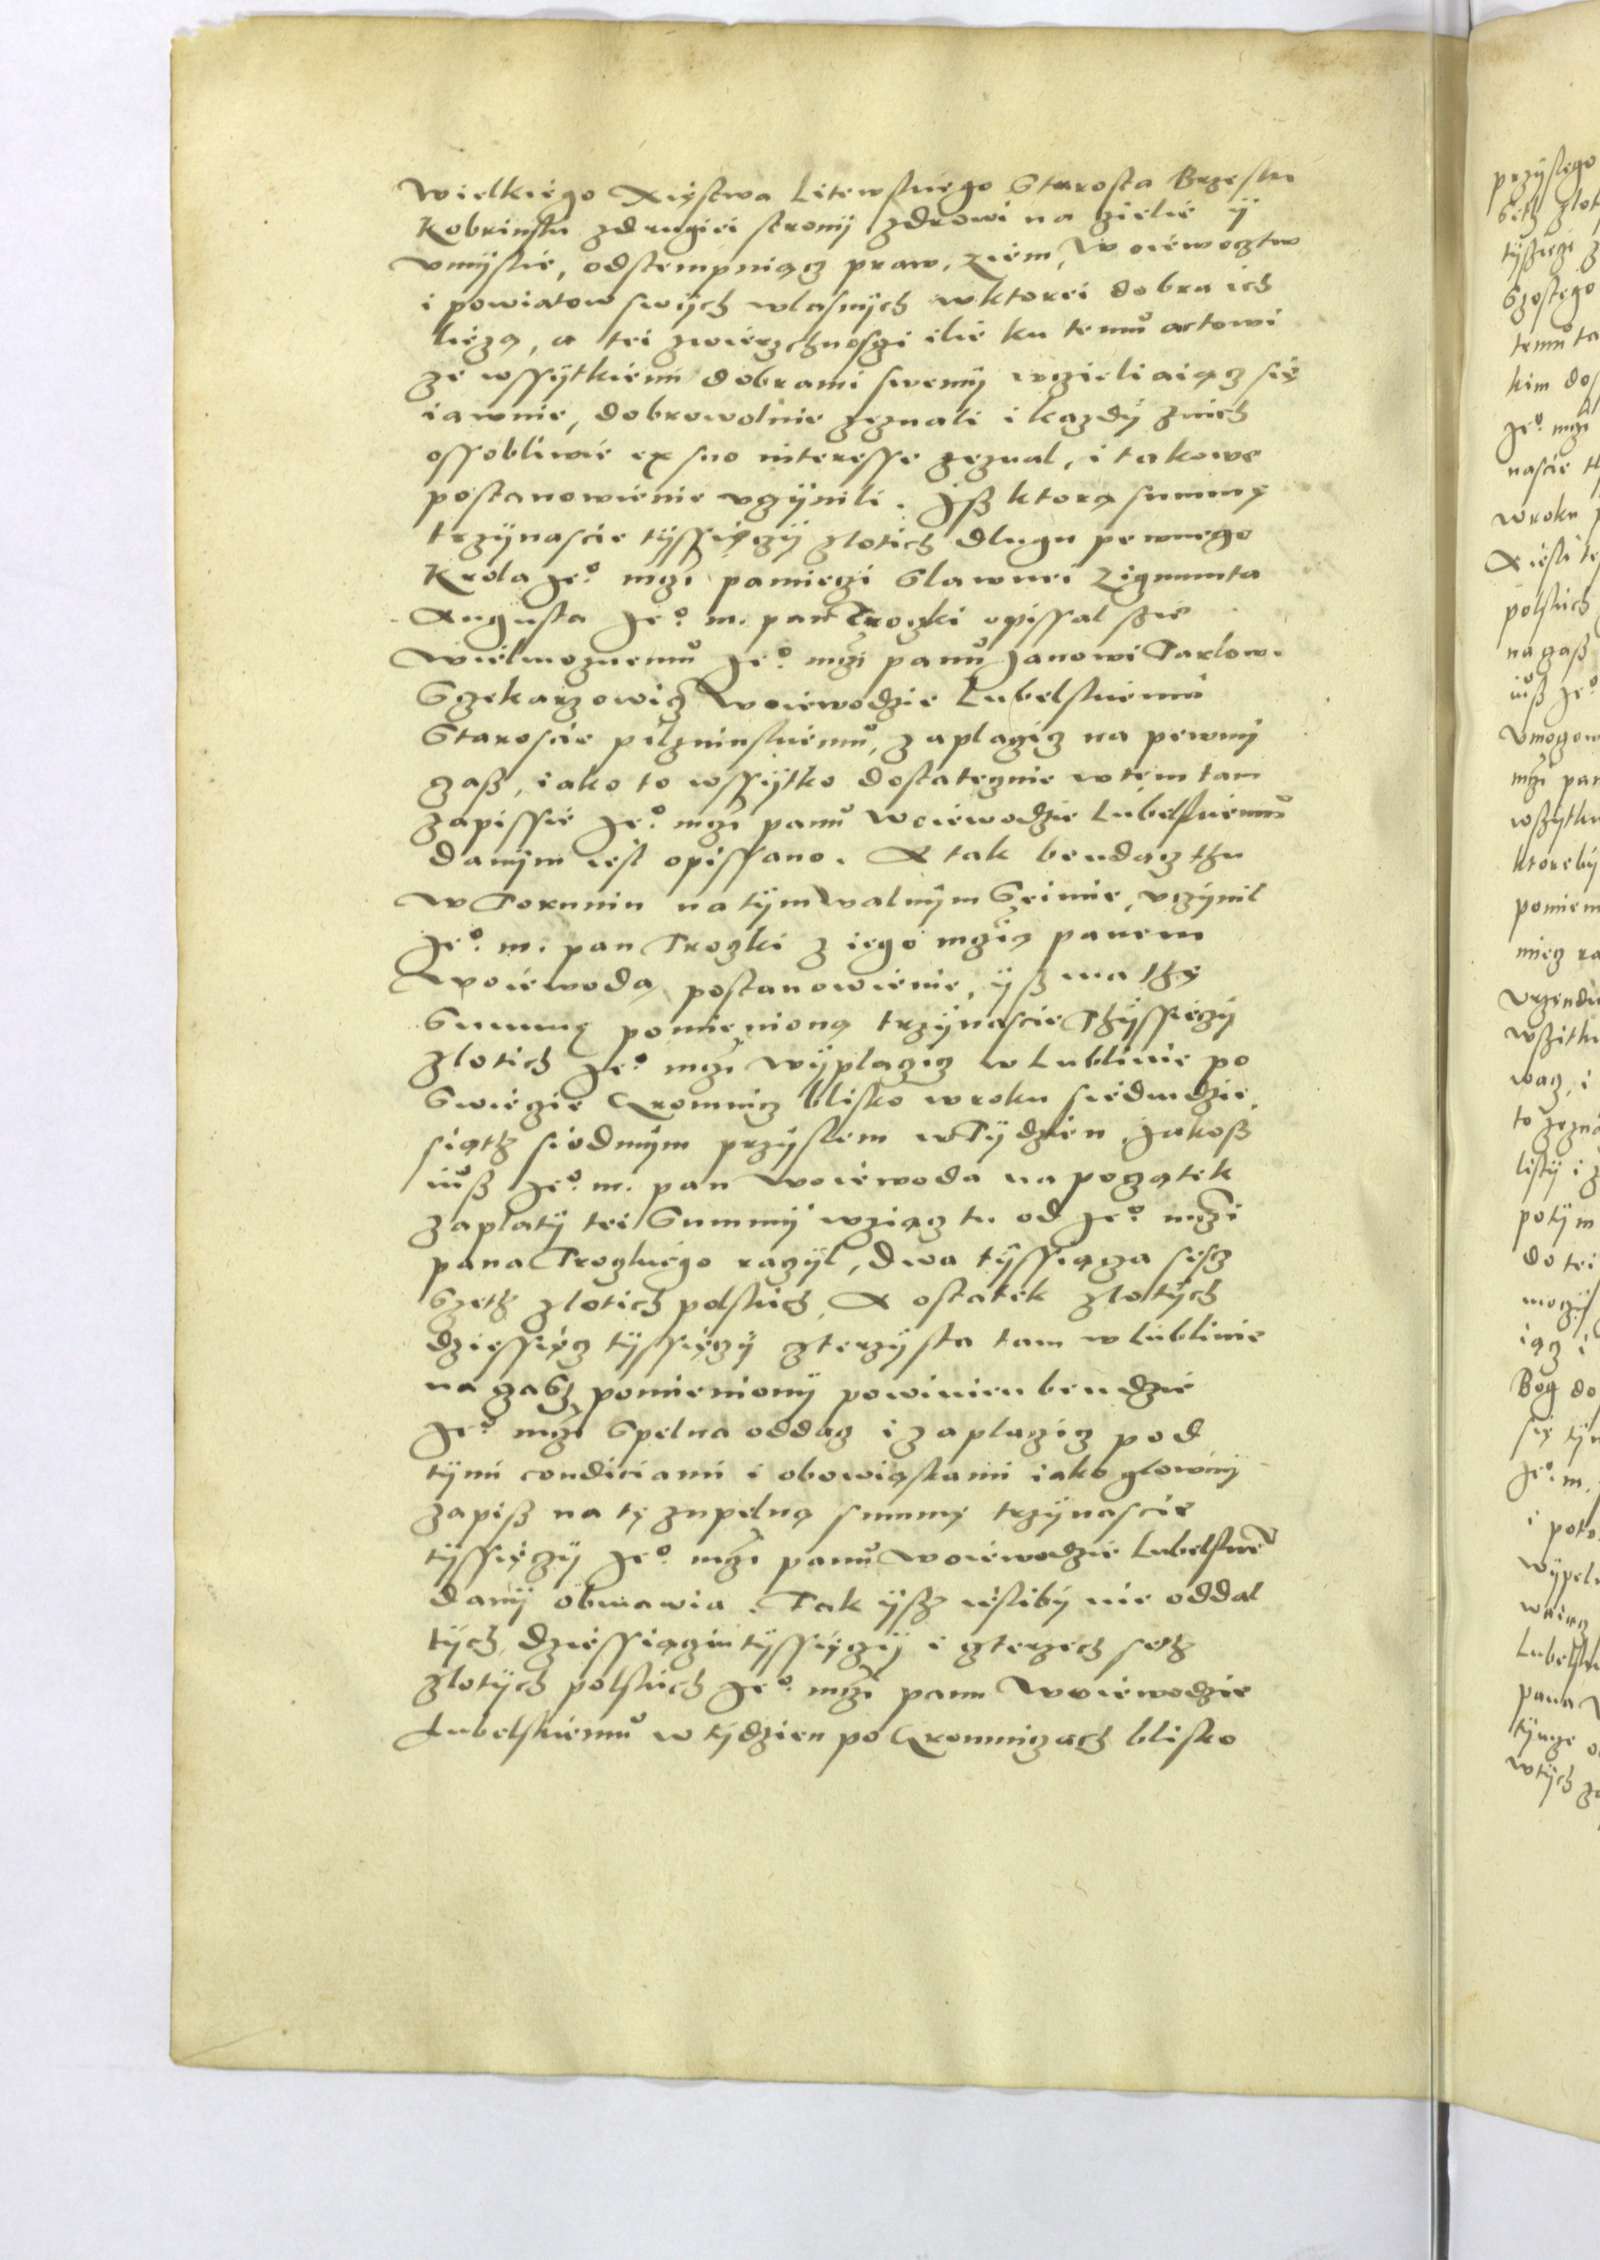 Wielkiego Xięstwa Litewskiego Starosta Brzeski
Kobrinski zdrugiei strony zdrowi na ziele ÿ
vmyslie, odstempuiącz praw, ziem, Woiewoztw
i powiatow swÿch wlasnÿch wktorei dobra ich
lieżą, a tei zwierzchnosczi ilie ku temu actowi
ze wssÿtkiemi dobrami swemÿ wzieliaiącz się
iawnie, dobrowolnie zeznali i kazdÿ znich
ossobliwie ex suo interesse zeznal, i takowe
postanowienie vczÿnili. Jsz ktorą summę
trzÿnascie tÿssięczÿ zlotich dlugu pewnego
Krola Je° mczi pamieczi slawnei Zigmunta
Augusta Je° m. pan Troczki opissal szie
Wielmoznemu Je° mczi panu Janowi Tarlowi
Sczekarzowicz Woiewodzie Lubelskiemu
Staroscie pilzninskiemu, zaplaczicz na pewnÿ
czasz, iako to wssÿtko dostatecznie wtem tam
zapissie Je° mczi panu Woiewodzie Lubelskiemu
danÿm iest opissano. A tak bendącz thu
w Toruniu na tÿm Walnÿm Seimie, vczÿnil
Je° m. pan Troczki z iego mczią panem
Woiewodą postanowienie, ÿsz ma thę
Summę pomienioną trzÿnascie Thÿssięczÿ
zlotich Je° mczi wÿplaczicz w Lublinie po
Swięcie Gromnicz blisko wroku siedmdzie
siąth siodmÿm przÿslem w Tÿdzien. Jakosz
iusz Je° m. pan Woiewoda na początek
zaplatÿ tei Summÿ wziącz tu od Je° mczi
pana Troczkiego raczÿl, dwa tÿssiącza sesz
Szeth zlotich polskich, A ostatek zlotÿch
dziessięcz tÿssięczÿ czterzÿsta tam w Lublinie
na czasz pomienionÿ powinien bendzie
Je° mczi Spelna oddacz i zaplaczicz pod
tÿmi condiciami i obowiąskami iako glownÿ
zapisz na tę zupelną summę trzÿnascie
tÿssięczÿ Je° mczi panu Woiewodzie Lubelskie°
danÿ obmawia. Tak ÿsz iesliby nie oddal
tÿch dziessiącziu tÿssięczÿ i czterzech seth
zlotÿch polskich Je° mczi panu Woiewodzie
Lubelskiemu w tÿdzien po Gromniczach blisko